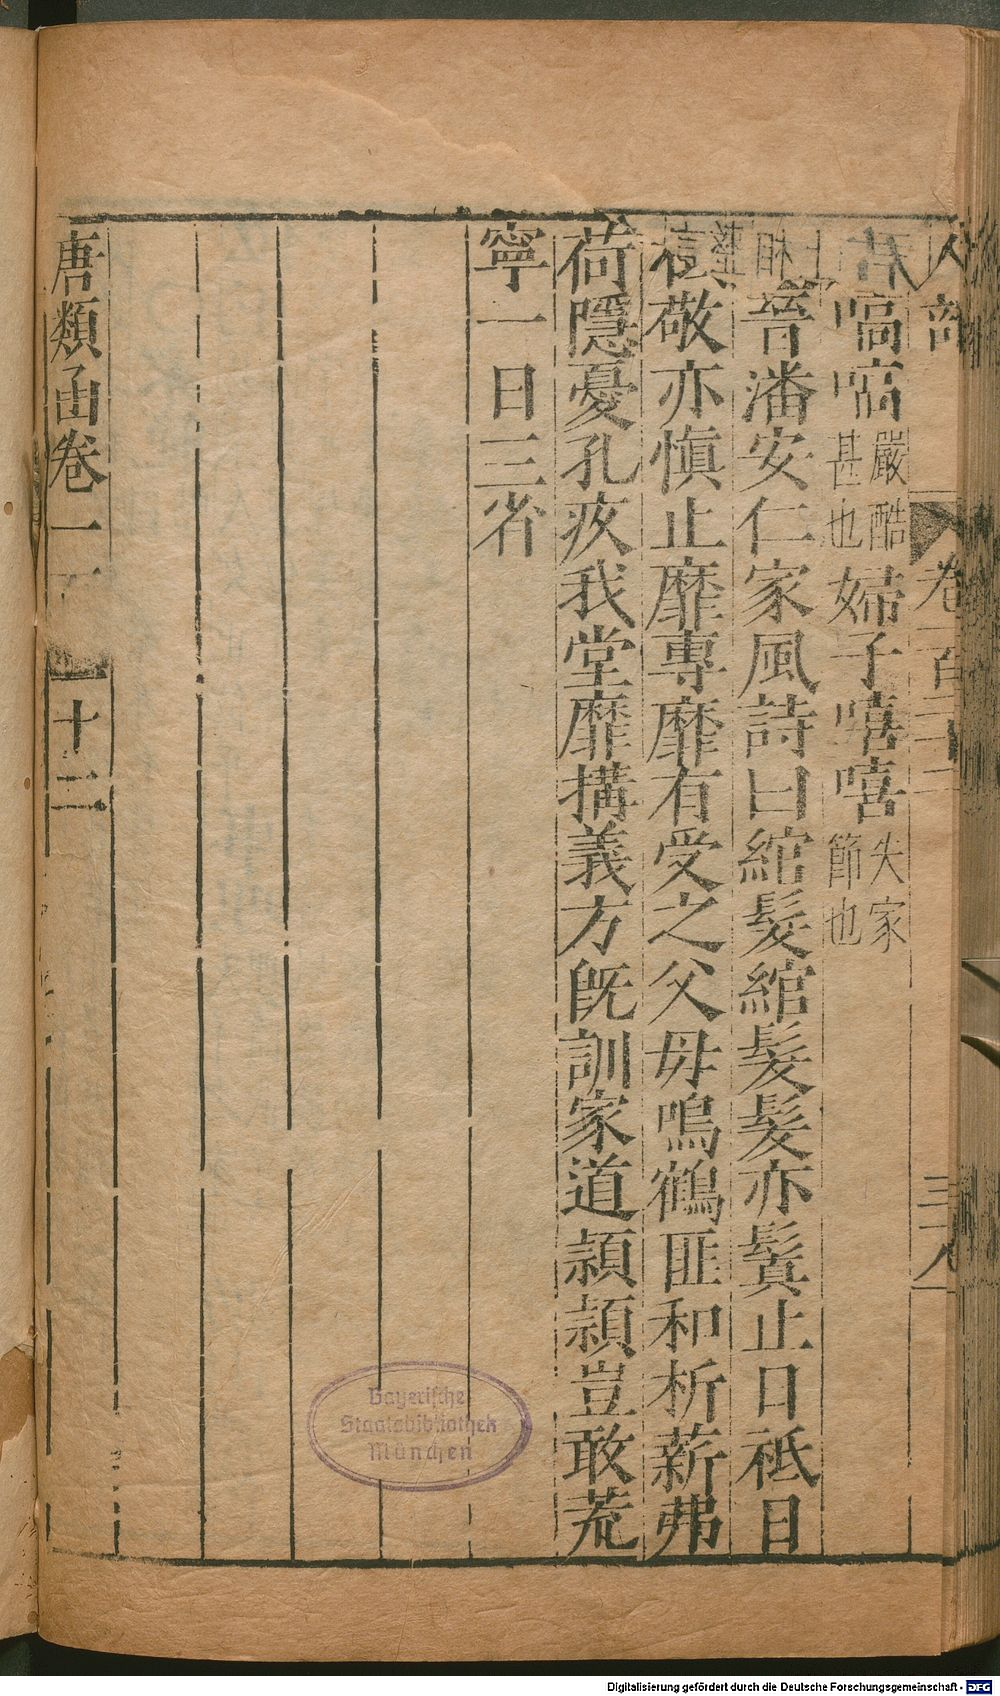 人部 卷一百三十一 三八
嗃嗃嚴酷甚也婦子嘻嘻失家節也
晉潘安仁家風詩曰綰髮綰髮髮亦鬒止日祗日
敬亦慎止靡專靡有受之父母鳴鶴匪和析薪弗
荷隱憂孔疚我堂靡搆義方旣訓家道頴頴豈敢荒
寧一日三省
唐類函卷一
十二
Bayerische
Staatsbibliothek
München
Digitalisierung gefördert durch die Deutsche Forschungsgemeinschaft - DFG